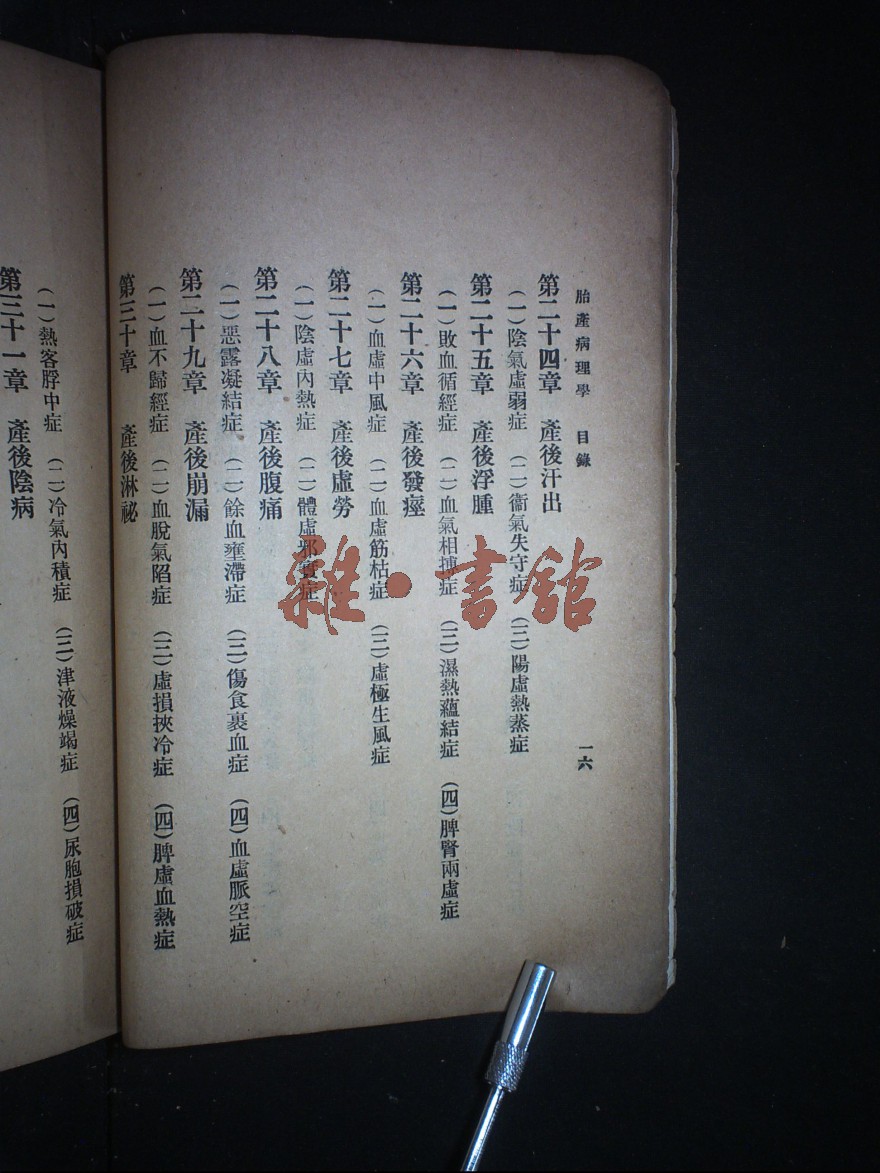 胎產病理學 目錄 一六
第二十四章 產後汗出
(一)陰氣虛弱症 (二)衞氣失守症 (三)陽虛熱蒸症
第二十五章 產後浮腫
(一)敗血循經症 (二)血氣相搏症 (三)濕熱蘊結症 (四)脾腎兩虛症
第二十六章 產後發痙
(一)血虛中風症 (二)血虛筋枯症 (三)虛極生風症
第二十七章 產後虛勞
(一)陰虛內熱症 (二)體虛邪實症
第二十八章 產後腹痛
(一)惡露凝結症 (二)餘血壅滯症 (三)傷食裹血症 (四)血虛脈空症
第二十九章 產後崩漏
(一)血不歸經症 (二)血脫氣陷症 (三)虛損挾冷症 (四)脾虛血熱症
第三十章 產後淋祕
(一)熱客脬中症 (二)冷氣內積症 (三)津液燥竭症 (四)尿胞損破症
第三十一章 產後陰病
雜·書館